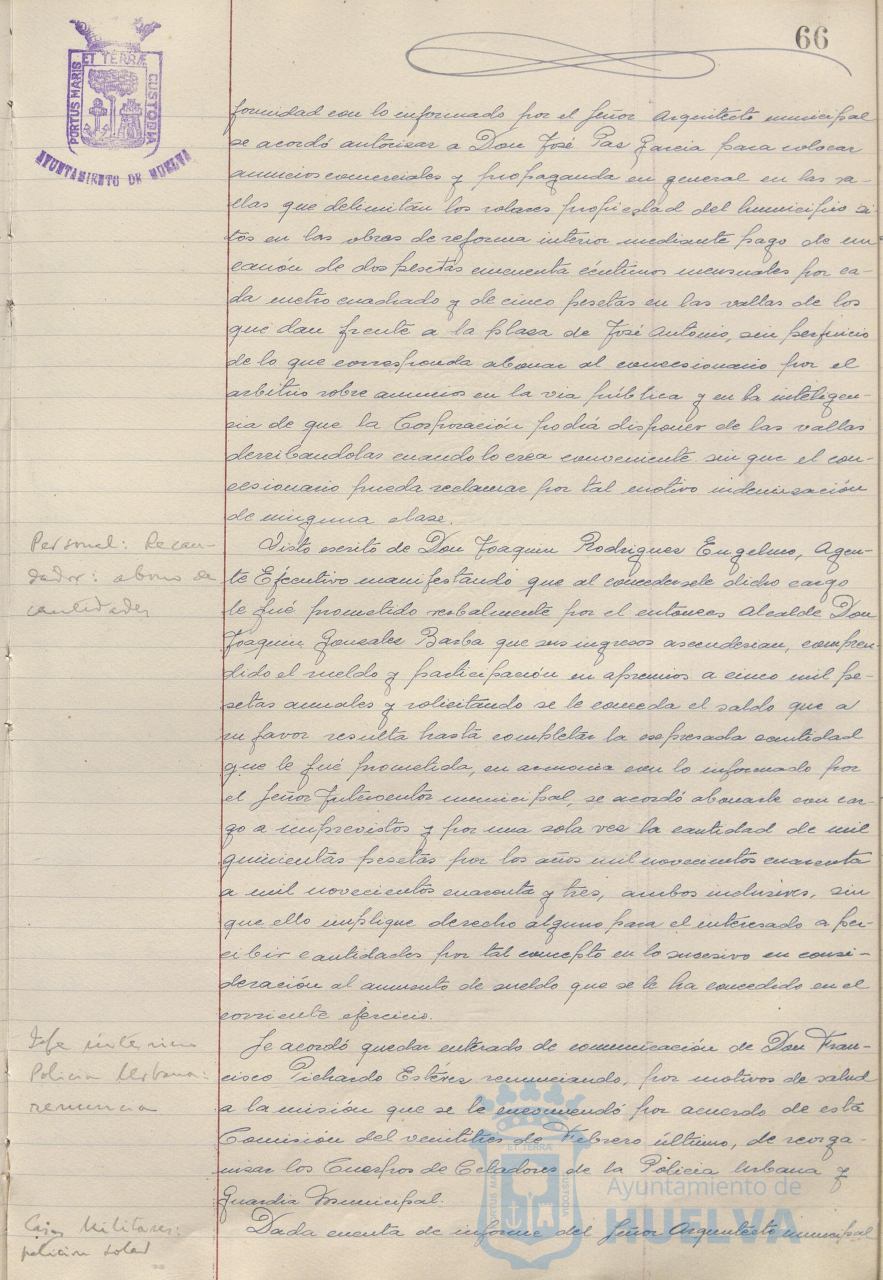 66
PORTUS MARIS ET TERRÆ CUSTODIA
AYUNTAMIENTO DE HUELVA
formidad con lo informado por el Señor Arquitecto municipal
se acordó autorizar a Don José Paz Garcia para colocar
anuncios comerciales y propaganda en general en las va-
llas que delimitan los solares propiedad del Municipio si-
tos en las obras de reforma interior mediante pago de un
canón de dos pesetas cincuenta céntimos mensuales por ca-
da metro cuadrado y de cinco pesetas en las vallas de los
que dan frente a la plaza de José Antonio, sin perjuicio
de lo que corresponda abonar al concesionario por el
arbitrio sobre anuncios en la via pública y en la inteligen-
cia de que la Corporación podrá disponer de las vallas
derribandolas cuando lo crea conveniente sin que el con-
cesionario pueda reclamar por tal motivo indemnización
de ninguna clase.
Personal: Recau-
dador: abono de
cantidades
Visto escrito de Don Joaquin Rodriguez Engelmo, Agen-
te Ejecutivo manifestando que al concedersele dicho cargo
le fué prometido verbalmente por el entonces Alcalde Don
Joaquin Gonzalez Barba que sus ingresos ascenderian, compren-
dido el sueldo y participación en apremios a cinco mil pe-
setas anuales y solicitando se le conceda el saldo que a
su favor resulta hasta completar la expresada cantidad
que le fué prometida, en armonia con lo informado por
el Señor Interventor municipal, se acordó abonarle con car-
go a imprevistos y por una sola vez la cantidad de mil
quinientas pesetas por los años mil novecientos cuarenta
a mil novecientos cuarenta y tres, ambos inclusives, sin
que ello implique derecho alguno para el interesado a per-
cibir cantidades por tal concepto en lo sucesivo en consi-
deración al aumento de sueldo que se le ha concedido en el
corriente ejercicio.
Jefe interino
Policia Urbana:
renuncia
Se acordó quedar enterado de comunicación de Don Fran-
cisco Pichardo Estévez renunciando, por motivos de salud
a la misión que se le encomendó por acuerdo de esta
Comisión del veintitres de Febrero último, de reorga-
nizar los Cuerpos de Celadores de la Policia Urbana y
Guardia Municipal.
Militares:
peticion solar
Dada cuenta de informe del Señor Arquitecto municipal
ET TERRÆ
PORTUS MARIS
CUSTODIA
Ayuntamiento de
HUELVA